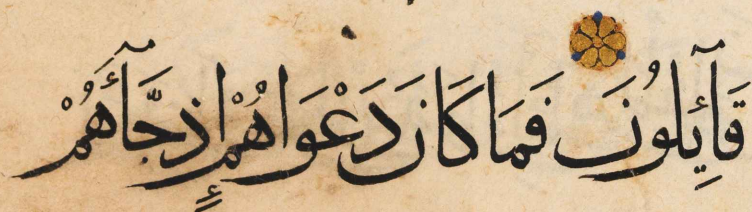 قَآئِلُونَ فَمَا كَانَ دَعْوَاهُمْ إِذجَّآءَهُمْ